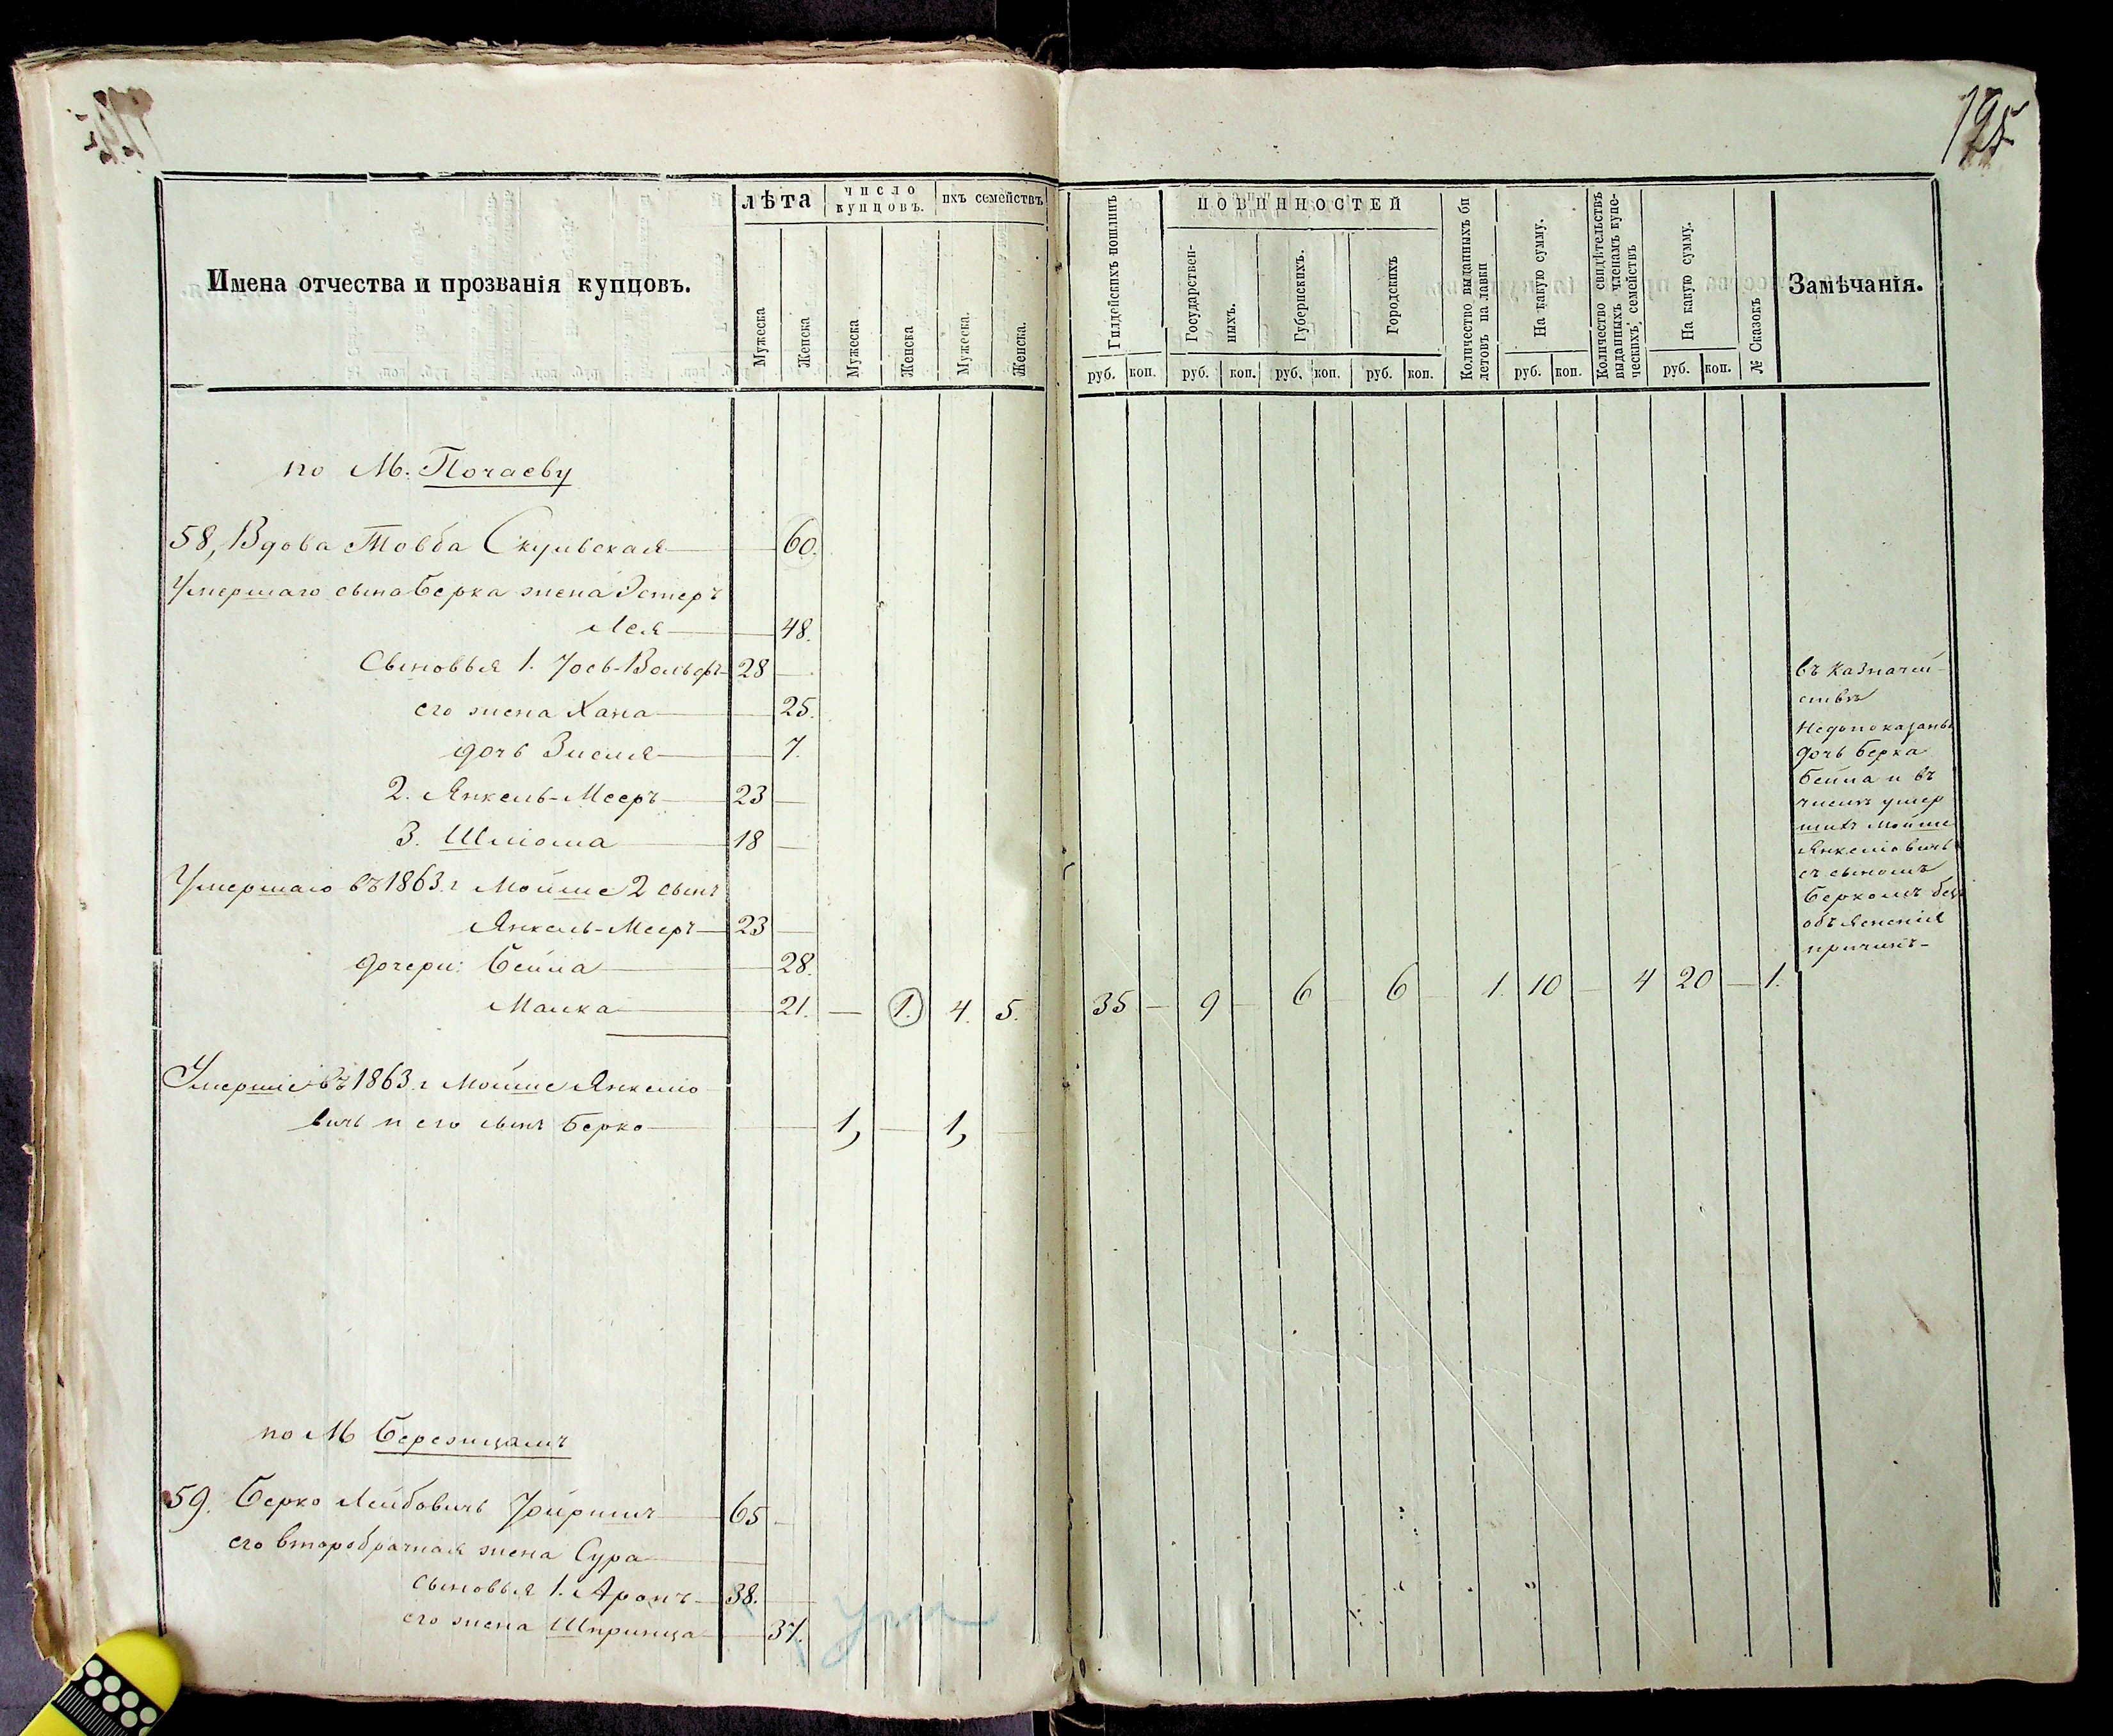 195
Имена отчества и прозванія купцовъ.
лѣта
число купцовъ.
ихъ семействъ
Мужеска
Женска
Мужеска
Женска
Мужеска.
Женска.
Гилдейскихъ пошлинъ
повинностей
Государственныхъ.
Губернскихъ.
Городскихъ
Количество выданныхъ билетовъ на лавки
На какую сумму.
Количество свидѣтельствъ выданныхъ членамъ купеческихъ семействъ
На какую сумму.
№ Сказокъ
Замѣчанія.
руб. коп. руб. коп. руб. коп. руб. коп. руб. коп. руб. коп.
по М. Почаеву
58, Вдова Товба 60.
Умершаго сына Берка жена Эстеръ
Лея 48.
Сыновья 1. Іось-Вольфъ 28
его жена Хана 25.
дочь Зисля 7.
2. Янкель-Мееръ 23
3. Шліома 18
Умершаго въ 1863 г Мойше 2 сынъ
Янкель-Мееръ 23
дочери: Бейла 28.
Малка 21. — 1. 4. 5. 35 — 9 — 6 — 6 — 1. 10 — 4 20 — 1.
Умершіе въ 1863 г Мойше Янкеліо
вичъ и его сынъ Берко 1, — 1,
въ казначей-
ствѣ
недопоказаны
дочь Берка
Бейла и въ
числѣ умер
шихъ Мойше
Янкеліовичъ
съ сыномъ
Беркомъ без
объясненія
причинъ-
по М Бережцамъ
59. Берко Лейбовичъ 65
его второбрачная жена Сура
сыновья 1. Аронъ 38.
его жена Шпринца 37.